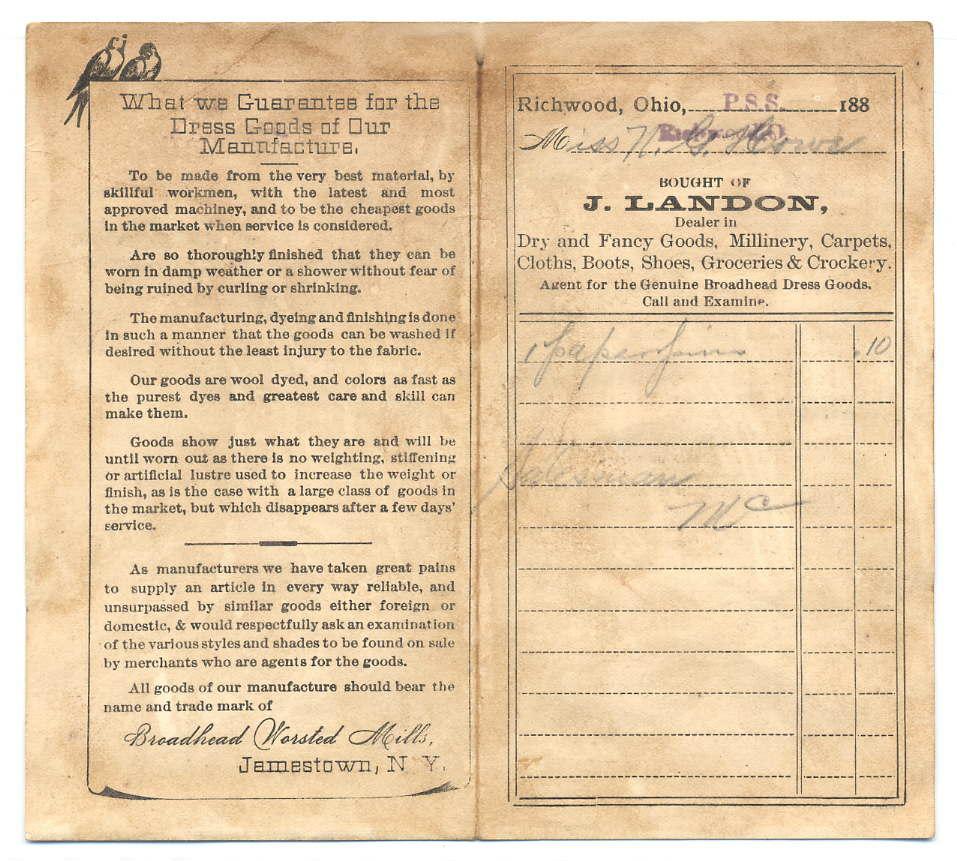 What we Guarantee for the
Dress Goods of Our
Manufacture.
To be made from the very best material, by
skillful workmen, with the latest and most
approved machiney, and to be the cheapest goods
in the market when service is considered.
Are so thoroughly finished that they can be
worn in damp weather or a shower without fear of
being ruined by curling or shrinking.
The manufacturing, dyeing and finishing is done
in such a manner that the goods can be washed if
desired without the least injury to the fabric.
Our goods are wool dyed, and colors as fast as
the purest dyes and greatest care and skill can
make them.
Goods show just what they are and will be
until worn out as there is no weighting, stiffening
or artificial lustre used to increase the weight or
finish, as is the case with a large class of goods in
the market, but which disappears after a few days'
service.
As manufacturers we have taken great pains
to supply an article in every way reliable, and
unsurpassed by similar goods either foreign or
domestic, & would respectfully ask an examination
of the various styles and shades to be found on sale
by merchants who are agents for the goods.
All goods of our manufacture should bear the
name and trade mark of
Broadhead Worsted Mills,
Jamestown, N. Y.
Richwood, Ohio, P.S.S. 188
Miss N. G. Howe
BOUGHT OF
J. LANDON,
Dealer in
Dry and Fancy Goods, Millinery, Carpets,
Cloths, Boots, Shoes, Groceries & Crockery.
Agent for the Genuine Broadhead Dress Goods.
Call and Examine.
1 paper pins .10
Salesman
Mc